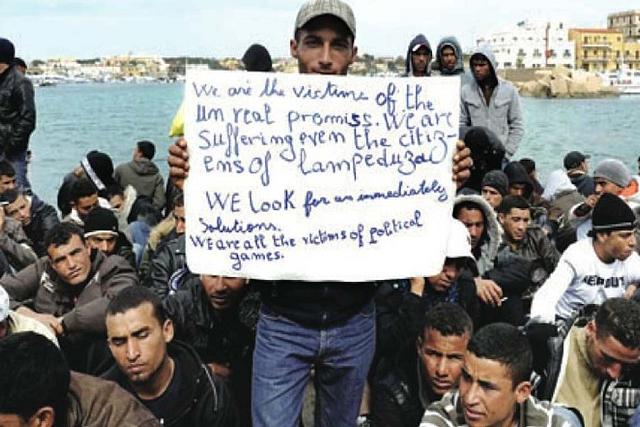 We are the victims of the
un real promiss. We are
suffering even the citiz-
ens of lampeduza
WE LOOK for an immediately
Solutions.
We are all the victims of political
games.